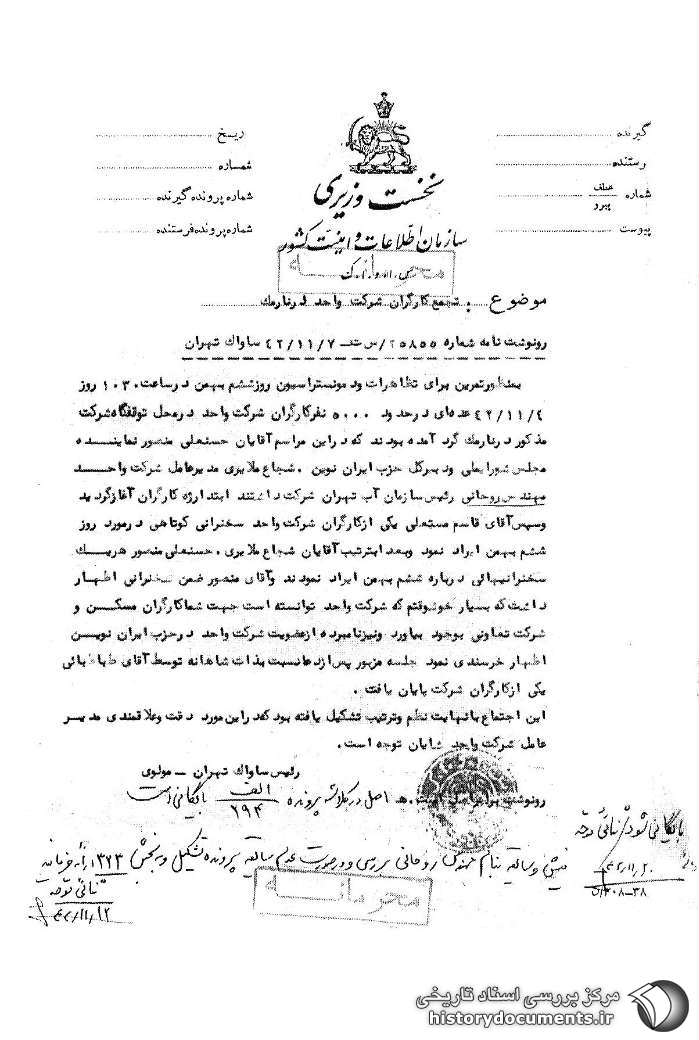 گیرنده
رستنده
شماره عطف پیرو
پیوست
ریخ
شماره
شماره پرونده گیرنده
شماره پرونده فرستنده
نخست وزیری
سازمان اطلاعات و امنیت کشور
محرمانه
موضوع : تجمع کارگران شرکت واحد در نارمک
رونوشت نامه شماره ۲۵۸۵۵/س ت ۴۲/۱۱/۷ ساواک تهران
بمنظور تمرین برای تظاهرات و دمونستراسیون روز ششم بهمن در ساعت ۱۰۳۰ روز
۴۲/۱۱/۴ عده‌ای در حدود ۵۰۰۰ نفر کارگران شرکت واحد در محل توقفگاه شرکت
مذکور در نارمک گرد آمده بودند که در این مراسم آقایان حسنعلی منصور نماینده
مجلس شورایملی و دبیر کل حزب ایران نوین . شجاع ملایری مدیر عامل شرکت واحد
مهندس روحانی رئیس سازمان آب تهران شرکت داشتند ابتدا رژه کارگران آغاز گردید
و سپس آقای قاسم مستعلی یکی از کارگران شرکت واحد سخنرانی کوتاهی در مورد روز
ششم بهمن ایراد نمود و بعد بترتیب آقایان شجاع ملایری . حسنعلی منصور هر یک
سخنرانیهائی درباره ششم بهمن ایراد نمودند و آقای منصور ضمن سخنرانی اظهار
داشت که بسیار خوشوقتم که شرکت واحد توانسته است جهت شما کارگران مسکن و
شرکت تعاونی بوجود بیاورد و نیز نامبرده از عضویت شرکت واحد در حزب ایران نویسن
اظهار خرسندی نمود جلسه مزبور پس از دعا نسبت بذات شاهانه توسط آقای طباطبائی
یکی از کارگران شرکت پایان یافت .
این اجتماع با نهایت نظم و ترتیب تشکیل یافته بود که در این مورد دقت و علاقمندی مدیر
عامل شرکت واحد شایان توجه است .
رئیس ساواک تهران – مولوی
رونوشت برابر اصل است . ه اصل در کلاسه پرونده الف ۲۹۴ بایگانی است
بایگانی شود ثنائی دوجه
۴۲/۱۱/۲۰
فیش و سابقه بنام مهندس روحانی بررسی و در صورت عدم سابقه پرونده تشکیل و ببخش ۳۲۳ ارائه فرمائید
ثنائی دوجه
۴۲/۱۱/۱۲
محرمانه
مرکز بررسی اسناد تاریخی
historydocuments.ir